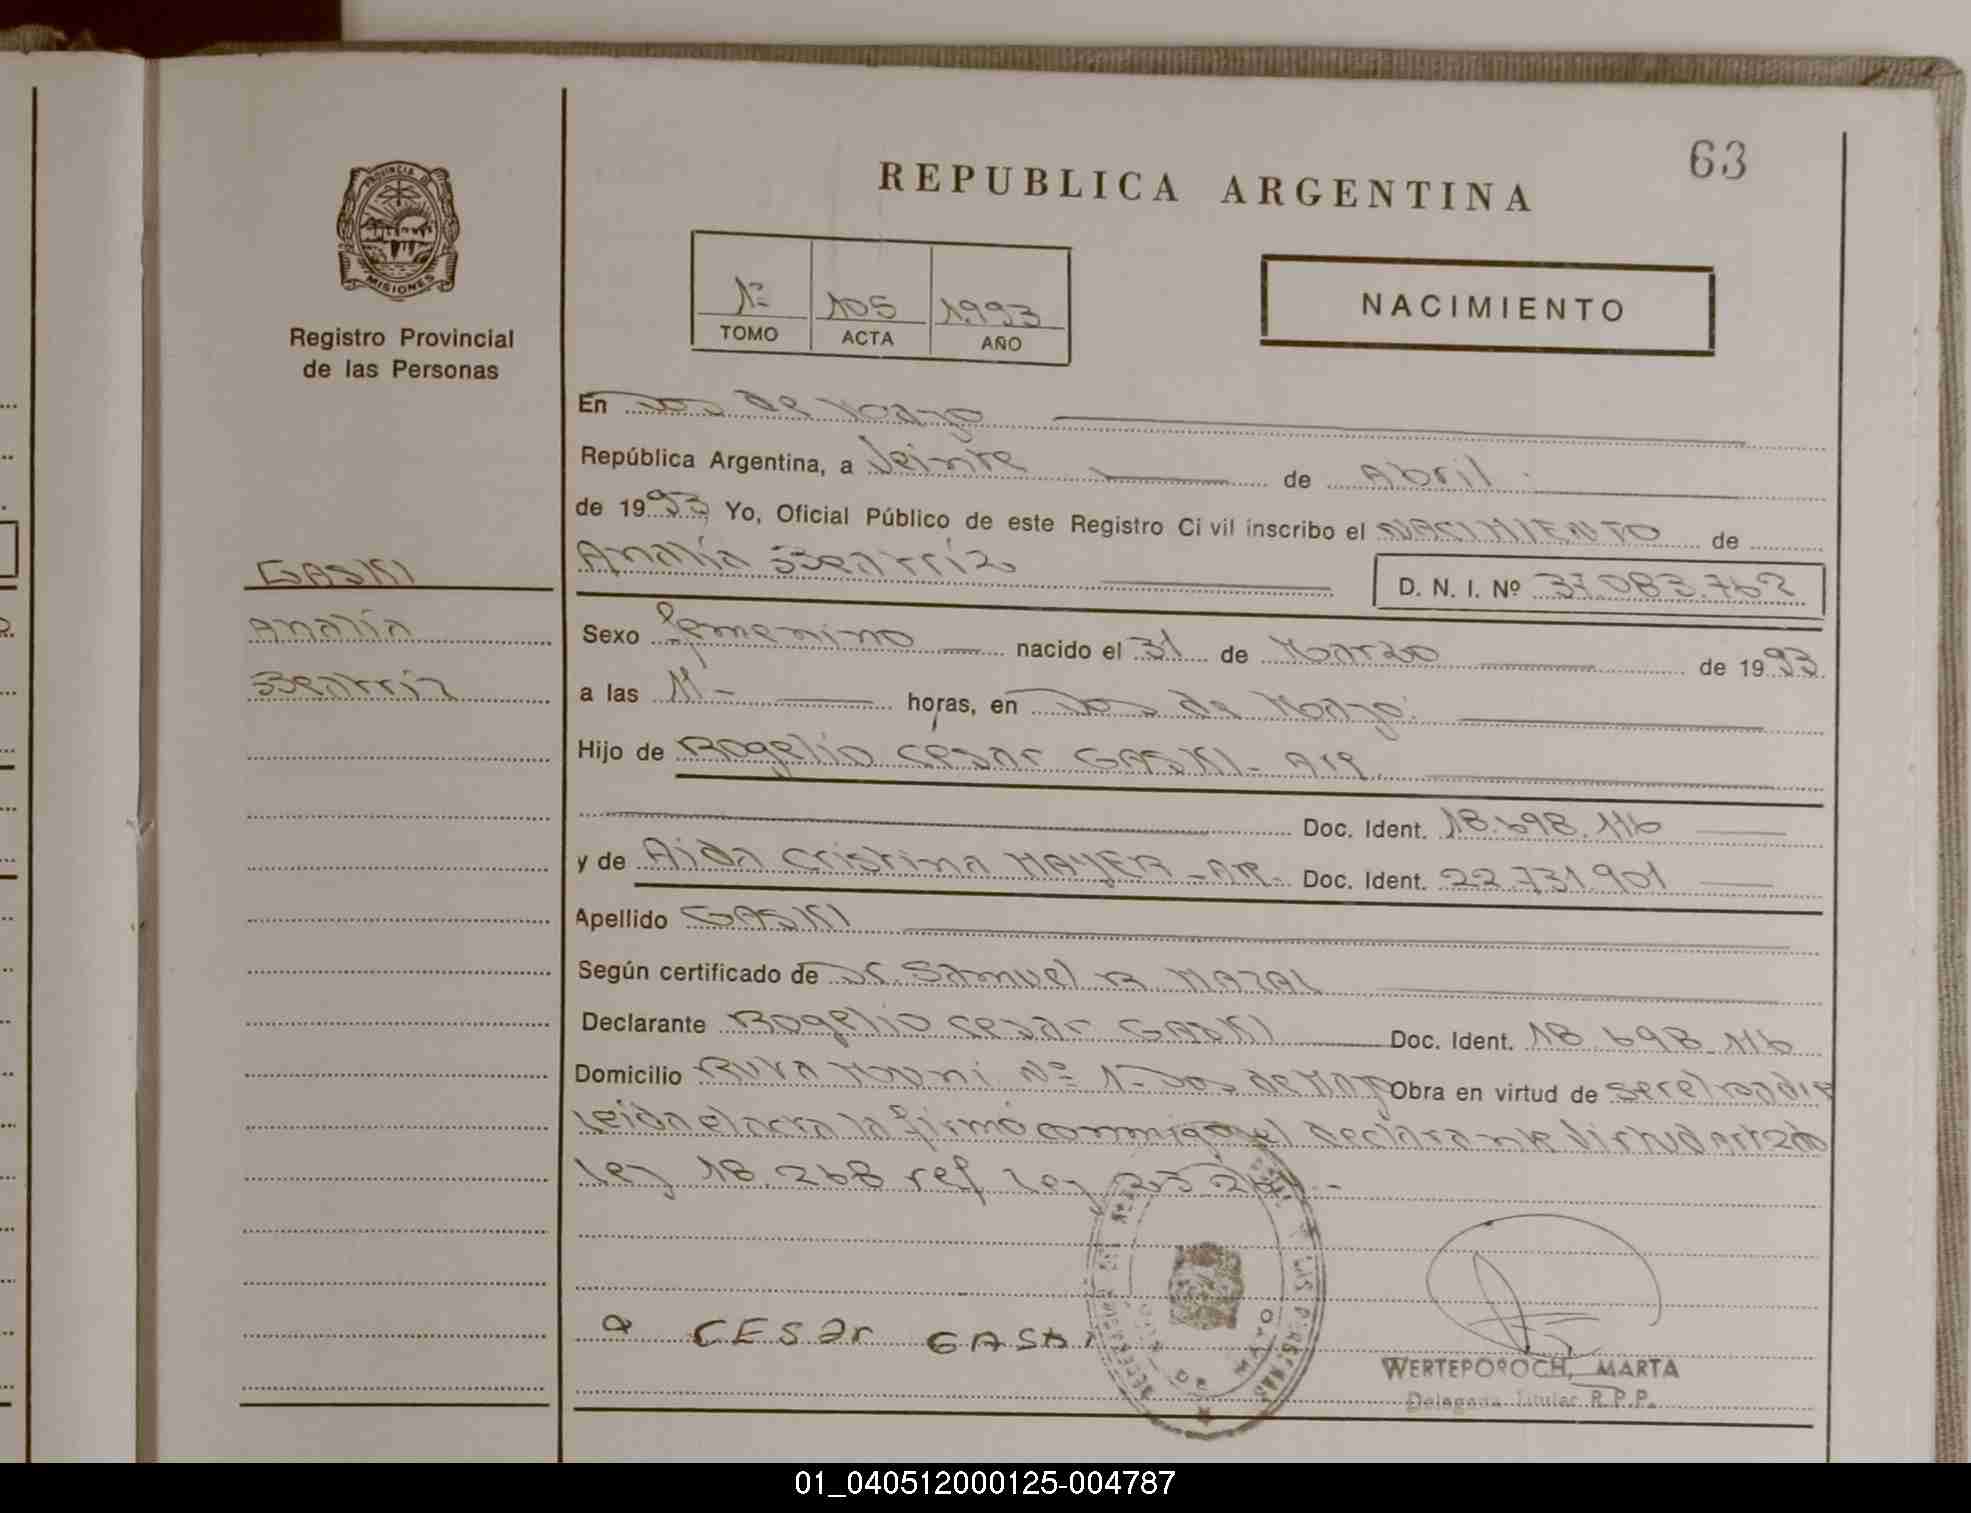 63
REPUBLICA ARGENTINA
PROVINCIA DE
MISIONES
Registro Provincial
de las Personas
1º 105 1993
TOMO ACTA AÑO
NACIMIENTO
En Dos de Mayo
República Argentina, a Veinte de Abril
de 1993 Yo, Oficial Público de este Registro Civil inscribo el NACIMIENTO de
Analía Beatríz D. N. I. Nº 37.083.762
GASKI
Analía
Beatríz
Sexo femenino nacido el 31 de Marzo de 1993
a las 11- horas, en Dos de Mayo.
Hijo de Rogelio Cesar GASKI- Arg.
Doc. Ident. 18.698.116
y de Aida Cristina MAYER -Arg- Doc. Ident. 22.731.901
Apellido GASKI
Según certificado de Dr. Samuel R MAZAL
Declarante Rogelio Cesar GASKI Doc. Ident. 18.698.116
Domicilio Ruta Nº 1- Dos de Mayo Obra en virtud de ser el padre
Leida el acta la firmó conmigo el declarante Virtud Art
Ley 18.268 ref Ley
a CESar GASKI
WERTEPOROCH, MARTA
Delegada Titular R.P.P.
01_040512000125-004787